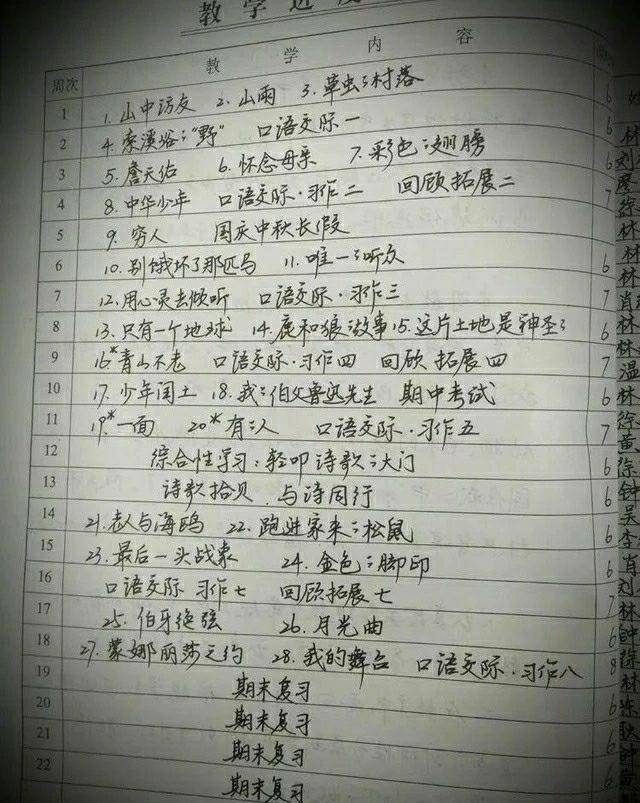 教学进度
周次 教学内容
1 1.山中访友 2.山雨 3.草虫的村落 6
2 4.索溪峪的"野" 口语交际一 6 林
3 5.詹天佑 6.怀念母亲 7.彩色的翅膀 6 刘
4 8.中华少年 口语交际·习作二 回顾拓展二 7
5 9.穷人 国庆中秋长假 林
6 10.别饿坏了那匹马 11.唯一的听众 6 林
7 12.用心灵去倾听 口语交际·习作三 7 肖
8 13.只有一个地球 14.鹿和狼的故事 15.这片土地是神圣的 6 林
9 16*青山不老 口语交际·习作四 回顾拓展四 7 温
10 17.少年闰土 18.我的伯父鲁迅先生 期中考试 6 林
11 19*一面 20*有的人 口语交际·习作五 7 徐
12 综合性学习:轻叩诗歌的大门 6 黄
13 诗歌拾贝 与诗同行 6 徐
14 21.老人与海鸥 22.跑进家来的松鼠 6 吴
15 23.最后一头战象 24.金色的脚印 6 李
16 口语交际 习作七 回顾拓展七 7 刘
17 25.伯牙绝弦 26.月光曲 6 林
18 27.蒙娜丽莎之约 28.我的舞台 口语交际·习作八 8 钟
19 期末复习 6 林
20 期末复习 6
21 期末复习 6
22 期末复习 6